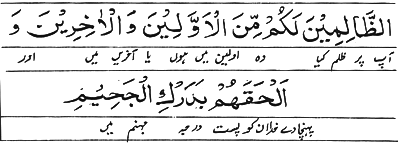 الظَّالِمِيْنَ لَكُمْ مِّنَ الْاَوَّلِيْنَ وَالْاٰخِرِيْنَ وَ
آپ پر ظلم کیا وہ اولین میں ہوں یا آخرین میں اور
اَلْحِقْهُمْ بِدَرْكِ الْجَحِيْمِ
پہنچا دے خدا ان کو پست درجہ جہنم میں